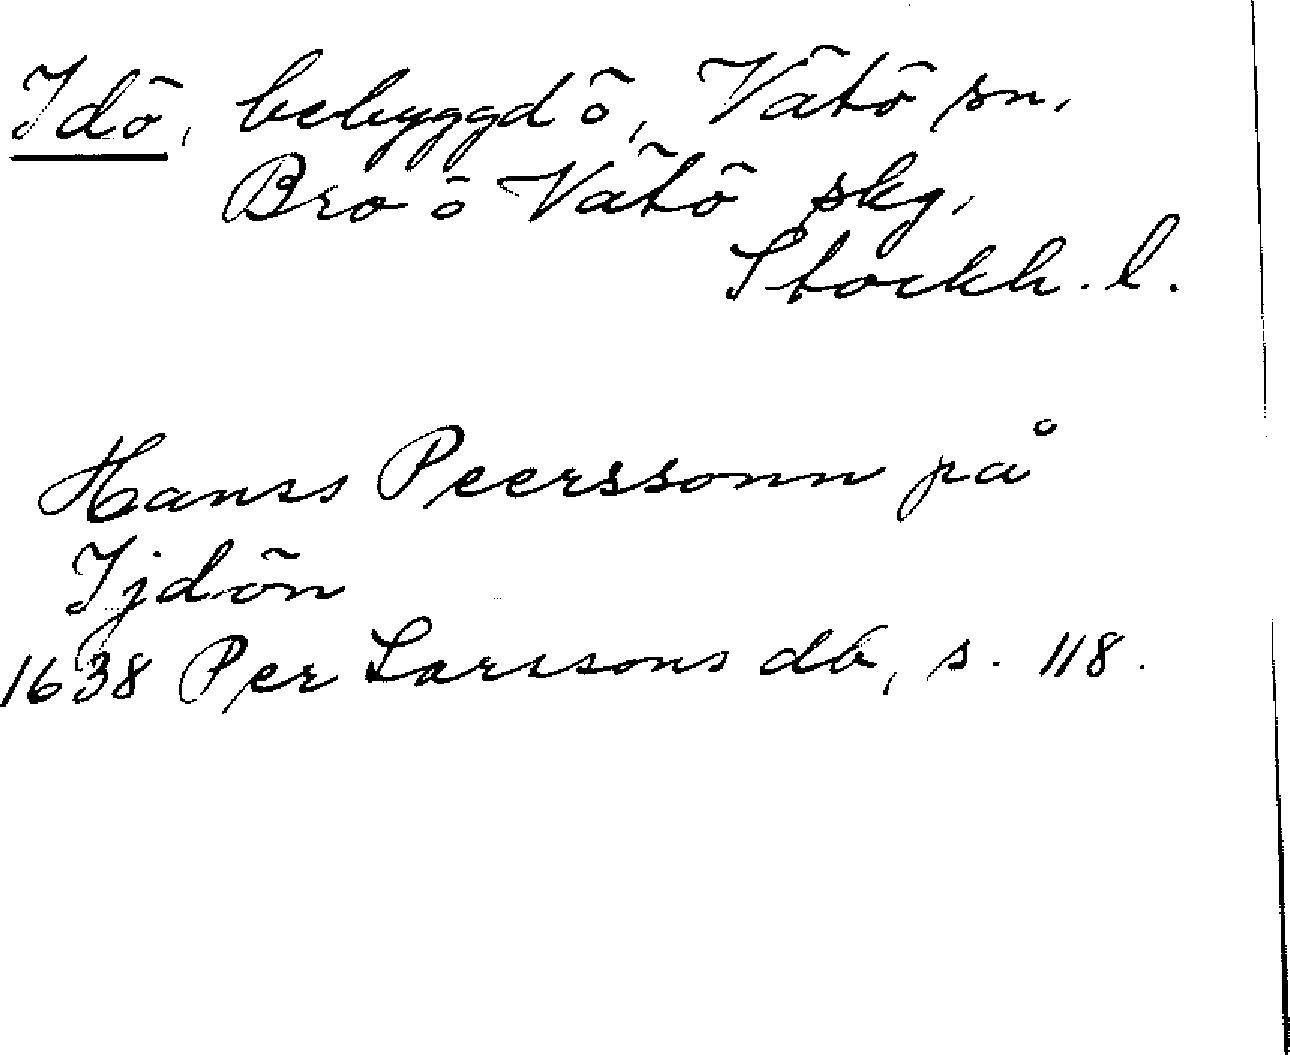 Idö, bebyggd ö, Vätö sn.
Bro o Vätö skg.
Stockh. l.
Hanss Peerssonn på
Ijdön
1638 Per Larssons db, s. 118.